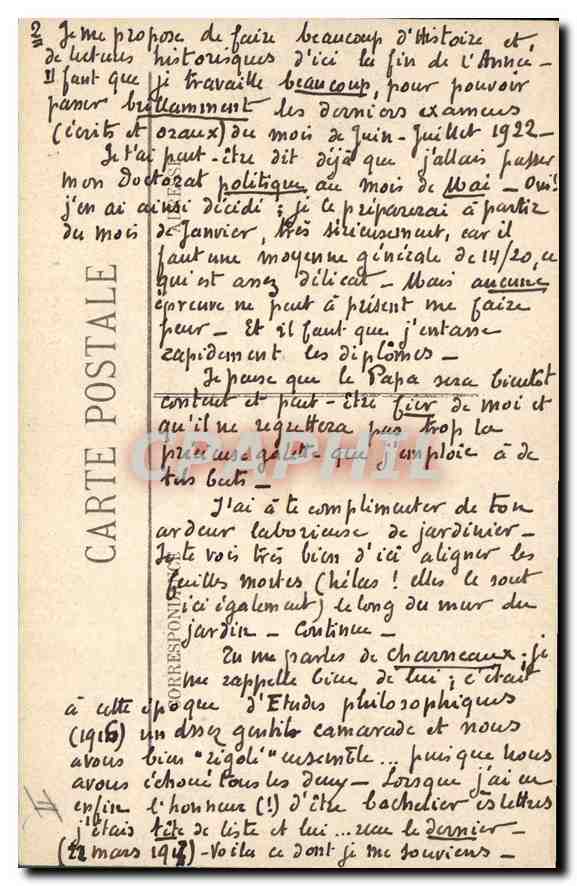 2 Je me propose de faire beaucoup d'Histoire et
de lectures historiques d'ici la fin de l'Année -
Il faut que je travaille beaucoup, pour pouvoir
passer brillamment les derniers examens
(écrits et oraux) du mois de Juin-Juillet 1922 -
Je t'ai peut-être dit déjà que j'allais passer
mon Doctorat politique au mois de Mai - Oui!
j'en ai ainsi décidé ; je le préparerai à partir
du mois de Janvier, très sérieusement, car il
faut une moyenne générale de 14/20, ce
qui est assez délicat - Mais aucune
épreuve ne peut à présent me faire
peur - Et il faut que j'entasse
rapidement les diplômes -
Je pense que le Papa sera bientôt
content et peut-être fier de moi et
qu'il ne regrettera pas trop la
précieuse galette que j'emploie à de
tels buts -
J'ai à te complimenter de ton
ardeur laborieuse de jardinier -
Je te vois très bien d'ici aligner les
feuilles mortes (hélas ! elles le sont
ici également) le long du mur du
jardin - Continue -
Tu me parles de Charneaux ; je
me rappelle bien de lui ; c'était
à cette époque d'Etudes philosophiques
(1916) un assez gentil camarade et nous
avons bien "rigolé" ensemble... puisque nous
avons échoué tous les deux - Lorsque j'ai eu
enfin l'honneur (!) d'être bachelier ès lettres
j'étais tête de liste et lui ... le dernier -
(22 mars 1917) - Voilà ce dont je me souviens -
CARTE POSTALE
ADRESSE
CORRESPONDANCE
CPAPHIL